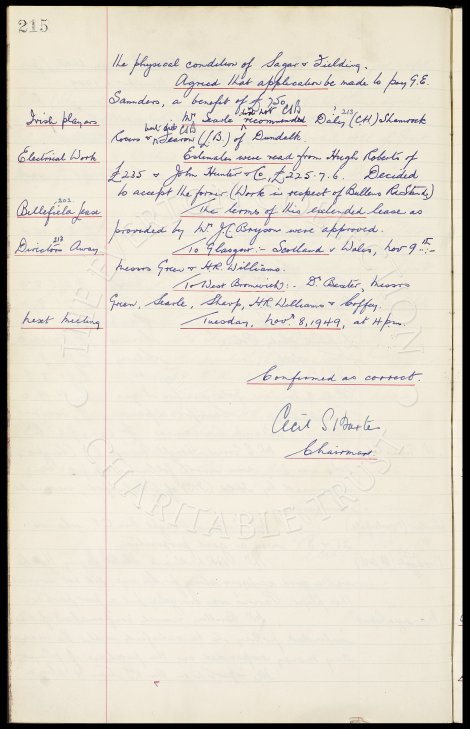 215
the physical condition of Sagar & Fielding.
Agreed that application be made to pay G.E.
Saunders, a benefit of £750.
Irish players
Mr. Searle did not recommend Daley (C.H.) Shamrock
Rovers & Fearon (L.B.) of Dundalk.
Electrical Work
Estimates were read from Hugh Roberts of
£235 & John Hunter & Co, £225.7.6. Decided
to accept the former (Work in respect of Bullens Rd. Stands)
202
Bellefield Lease
The terms of this extended lease as
provided by Mr J.C. Bryson were approved.
213
Directors Away
To Glasgow:- Scotland v Wales, Nov 9th:-
Messrs Green & H.R. Williams.
To West Bromwich:- Dr Baxter, Messrs
Green, Searle, Sharp, H.R. Williams & Coffey.
Next Meeting
Tuesday, Novr. 8, 1949, at 4 pm.
Confirmed as correct.
Cecil S Baxter
Chairman
CHARITABLE TRUST